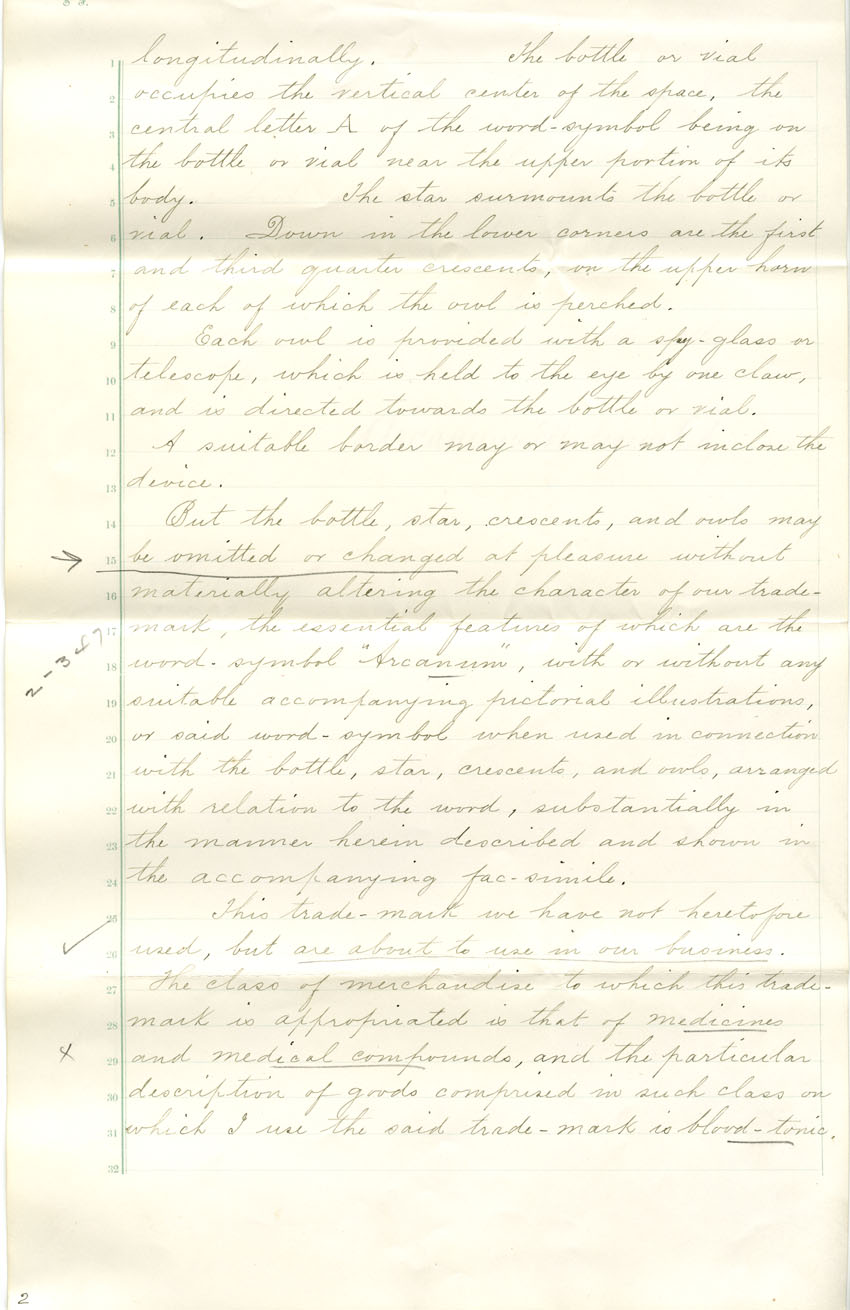 1 longitudinally. The bottle or vial
2 occupies the vertical center of the space, the
3 central letter A of the word-symbol being on
4 the bottle or vial near the upper portion of its
5 body. The star surmounts the bottle or
6 vial. Down in the lower corners are the first
7 and third quarter crescents, on the upper horn
8 of each of which the owl is perched.
9 Each owl is provided with a spy-glass or
10 telescope, which is held to the eye by one claw,
11 and is directed towards the bottle or vial.
12 A suitable border may or may not inclose the
13 device.
14 But the bottle, star, crescents, and owls may
15 be omitted or changed at pleasure without
16 materially altering the character of our trade-
17 mark, the essential features of which are the
2-347
18 word-symbol "Arcanum", with or without any
19 suitable accompanying pictorial illustrations,
20 or said word-symbol when used in connection
21 with the bottle, star, crescents, and owls, arranged
22 with relation to the word, substantially in
23 the manner herein described and shown in
24 the accompanying fac-simile.
25 This trade-mark we have not heretofore
26 used, but are about to use in our business.
27 The class of merchandise to which this trade-
28 mark is appropriated is that of medicines
x 29 and medical compounds, and the particular
30 description of goods comprised in such class on
31 which I use the said trade-mark is blood-tonic.
32
2